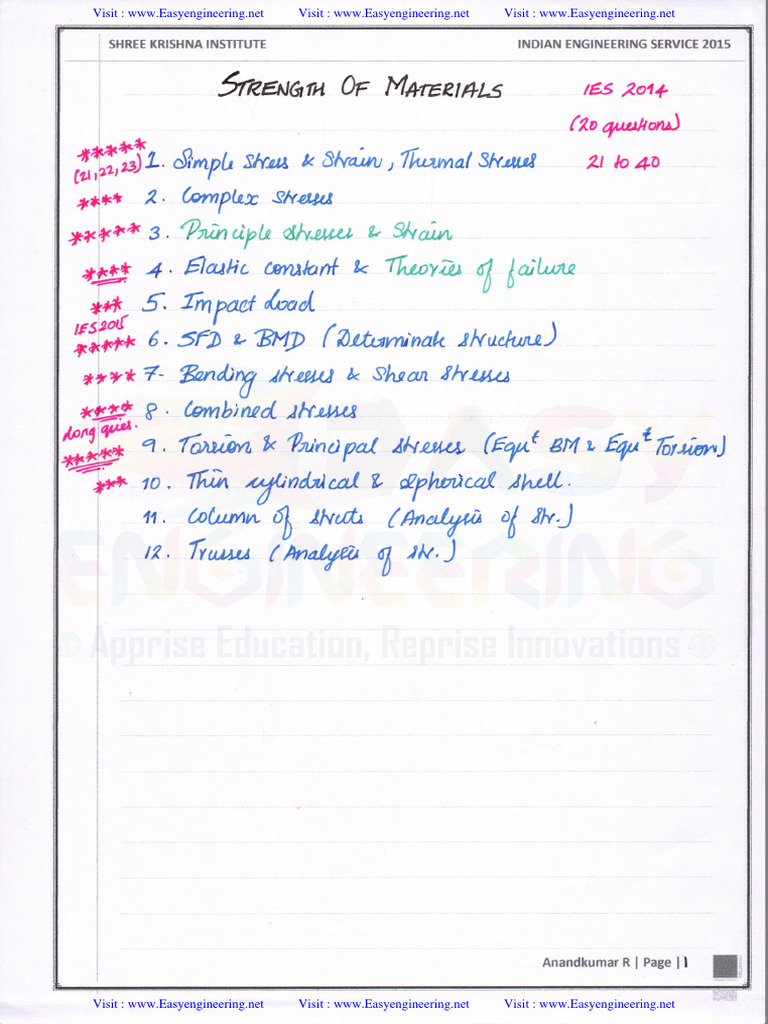 Visit : www.Easyengineering.net Visit : www.Easyengineering.net Visit : www.Easyengineering.net
SHREE KRISHNA INSTITUTE INDIAN ENGINEERING SERVICE 2015
STRENGTH OF MATERIALS IES 2014
(20 questions)
***** 1. Simple Stress & Strain, Thermal Stresses 21 to 40
(21,22,23)
**** 2. Complex stresses
***** 3. Principle stresses & Strain
**** 4. Elastic constant & Theories of failure
*** 5. Impact Load
IES 2015
***** 6. SFD & BMD (Determinate structure)
**** 7. Bending stresses & Shear stresses
**** 8. Combined stresses
Long ques.
***** 9. Torsion & Principal stresses (Equt BM & Equt Torsion)
*** 10. Thin cylindrical & spherical shell.
11. Column of struts (Analysis of Str.)
12. Trusses (Analysis of str.)
EASY
ENGINEERING
Apprise Education, Reprise Innovations
Anandkumar R | Page | 1
Visit : www.Easyengineering.net Visit : www.Easyengineering.net Visit : www.Easyengineering.net